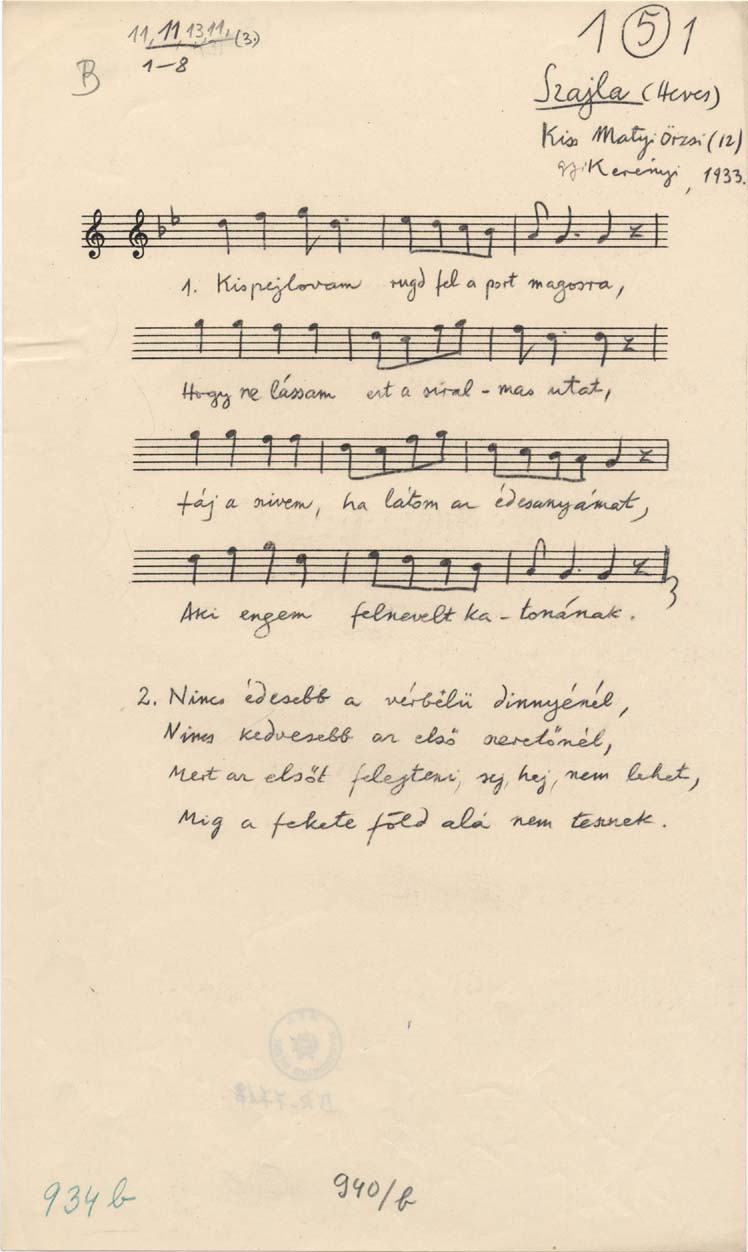 11, 11, 13, 11, (3)
1–8
B
1 5 1
Szajla (Heves)
Kiss Matyi Örzsi (12)
gy. Kerényi, 1933.
1. Kispejlovam rugd fel a port magosra,
Hogy ne lássam ezt a siral-mas utat,
fáj a szivem, ha látom az édesanyámat,
Aki engem felnevelt ka-tonának.
2. Nincs édesebb a vérbélü dinnyénél,
Nincs kedvesebb az első szeretőnél,
Mert az elsőt felejteni, sej, hej, nem lehet,
Mig a fekete föld alá nem tesznek.
934 b
940/b